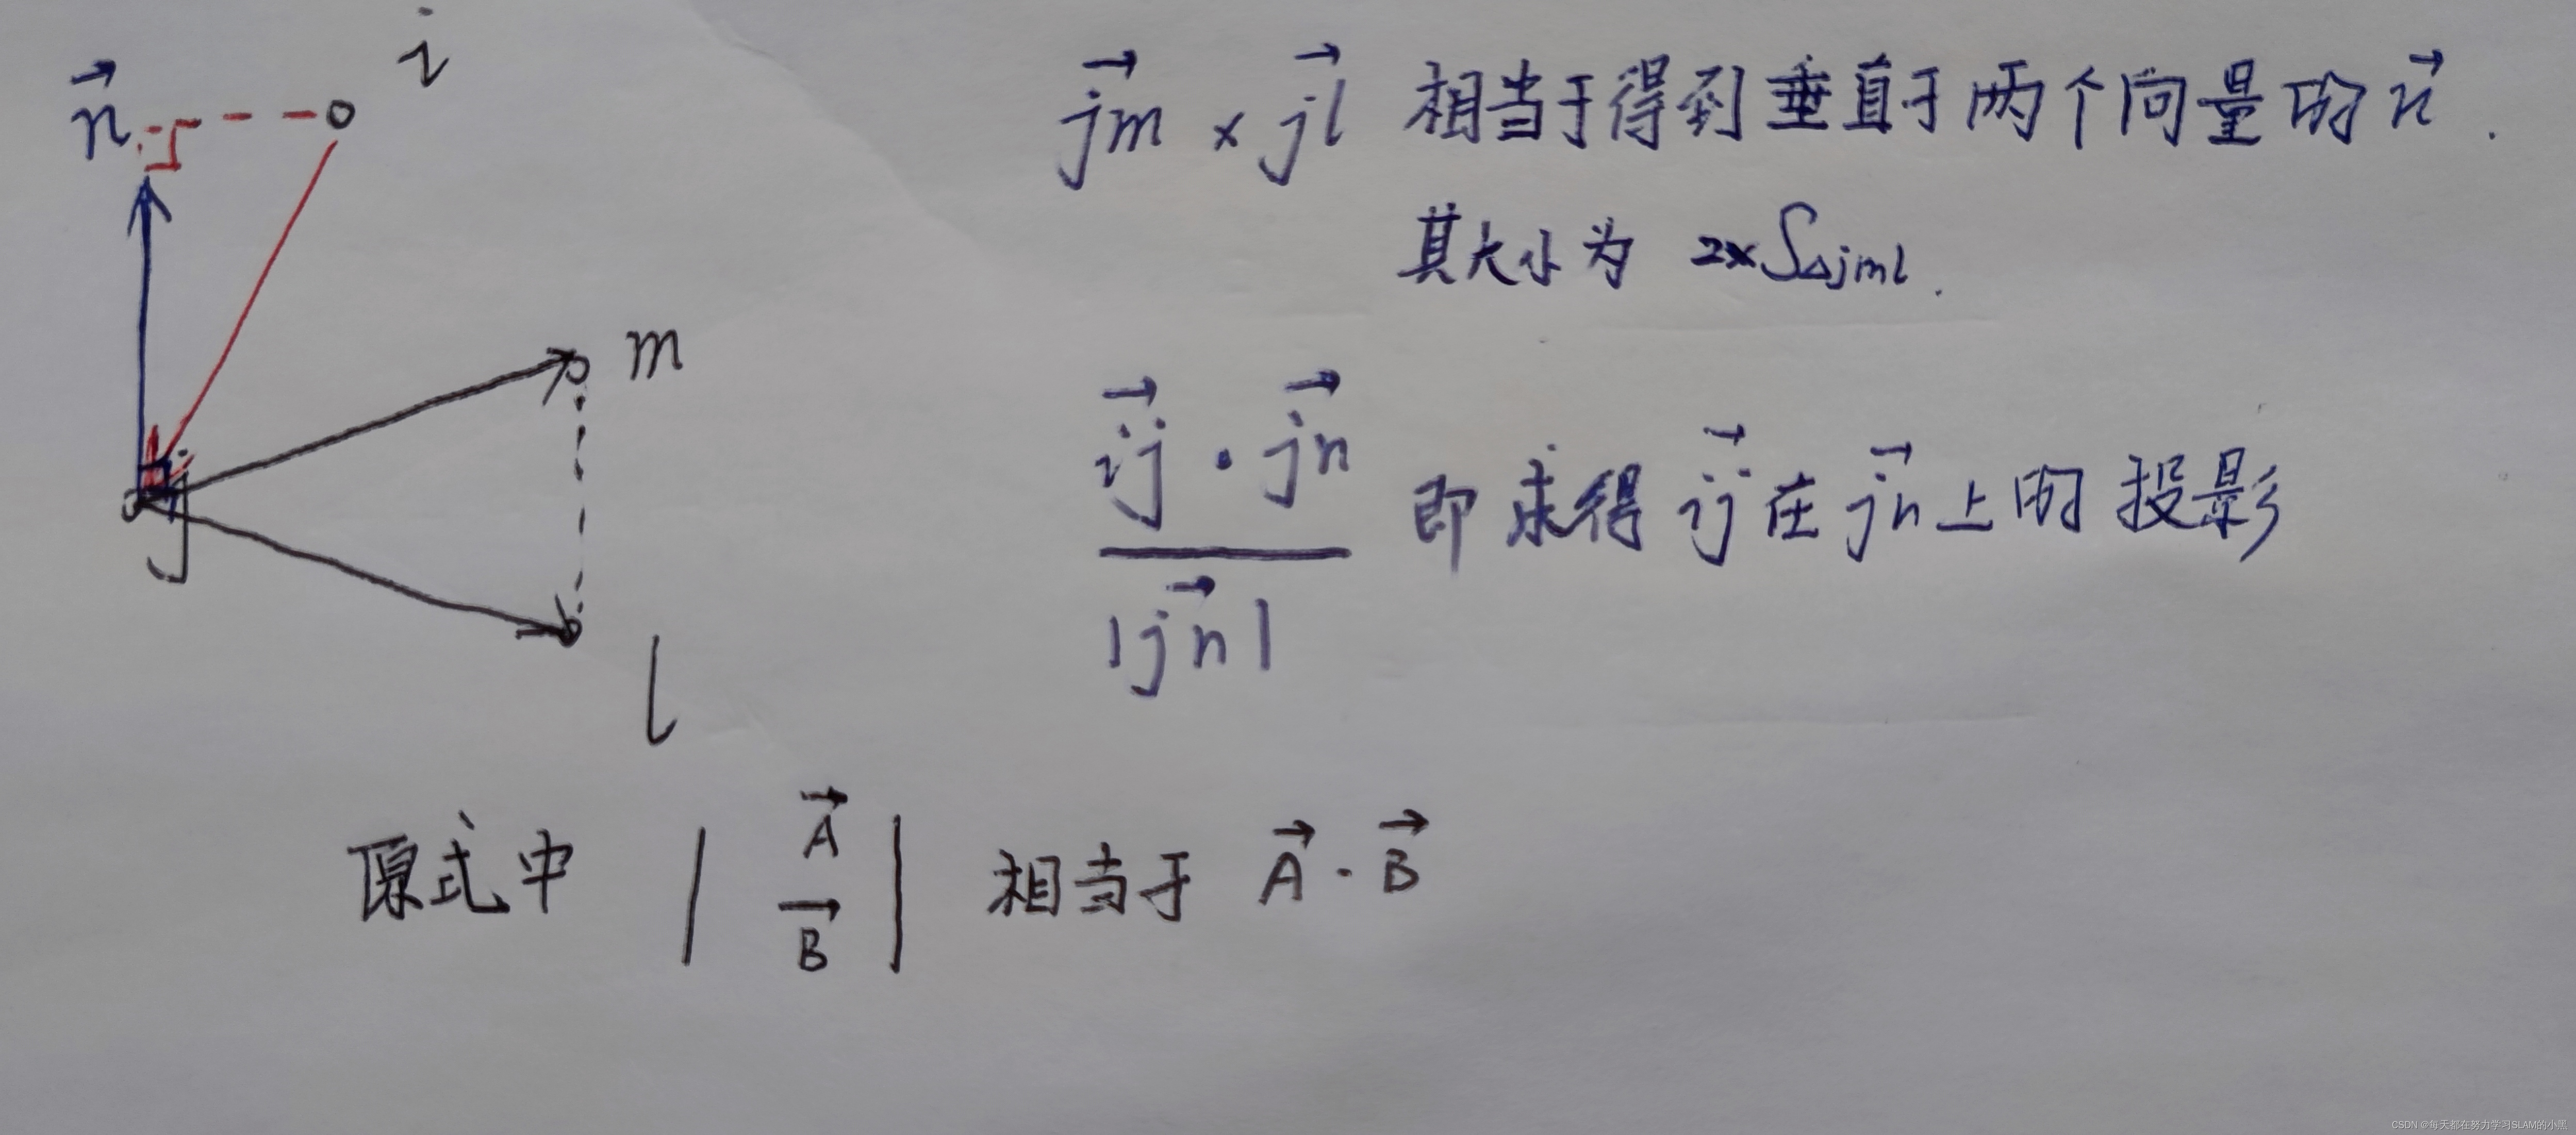 i
n⃗
m
j
l
j͞m⃗ × j͞l⃗ 相当于得到垂直于两个向量的 n⃗ .
其大小为 2×S△jml .
ij⃗ · jn⃗
|jn⃗|
即求得 ij⃗ 在 jn⃗ 上的投影
原式中 | A⃗ B⃗ | 相当于 A⃗ · B⃗
CSDN @每天都在努力学习SLAM的小黑